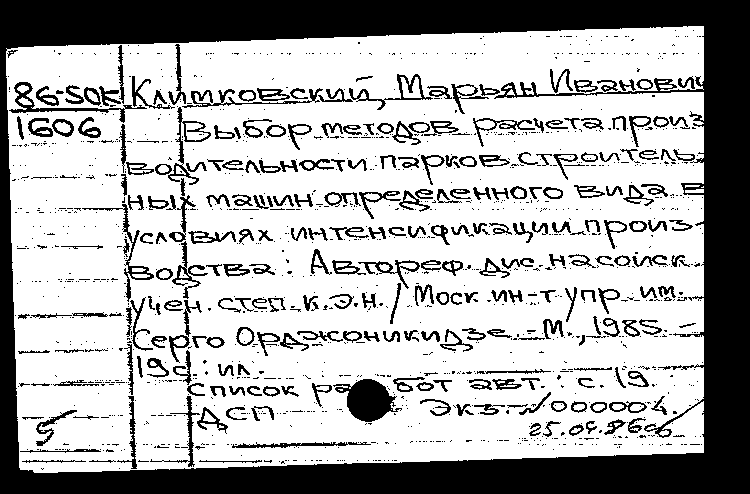 86-50к Климковский, Марьян Иванович
1606 Выбор методов расчета произ
водительности парков строитель-
ных машин определенного вида в
условиях интенсификации произ-
водства : Автореф. дис. на соиск
учен. степ. к.э.н. / Моск. ин-т упр им.
Серго Орджоникидзе. - М., 1985. -
19с. : ил.
Список работ авт. : с. 19.
ДСП Экз. N 000004.
5 25.04.86